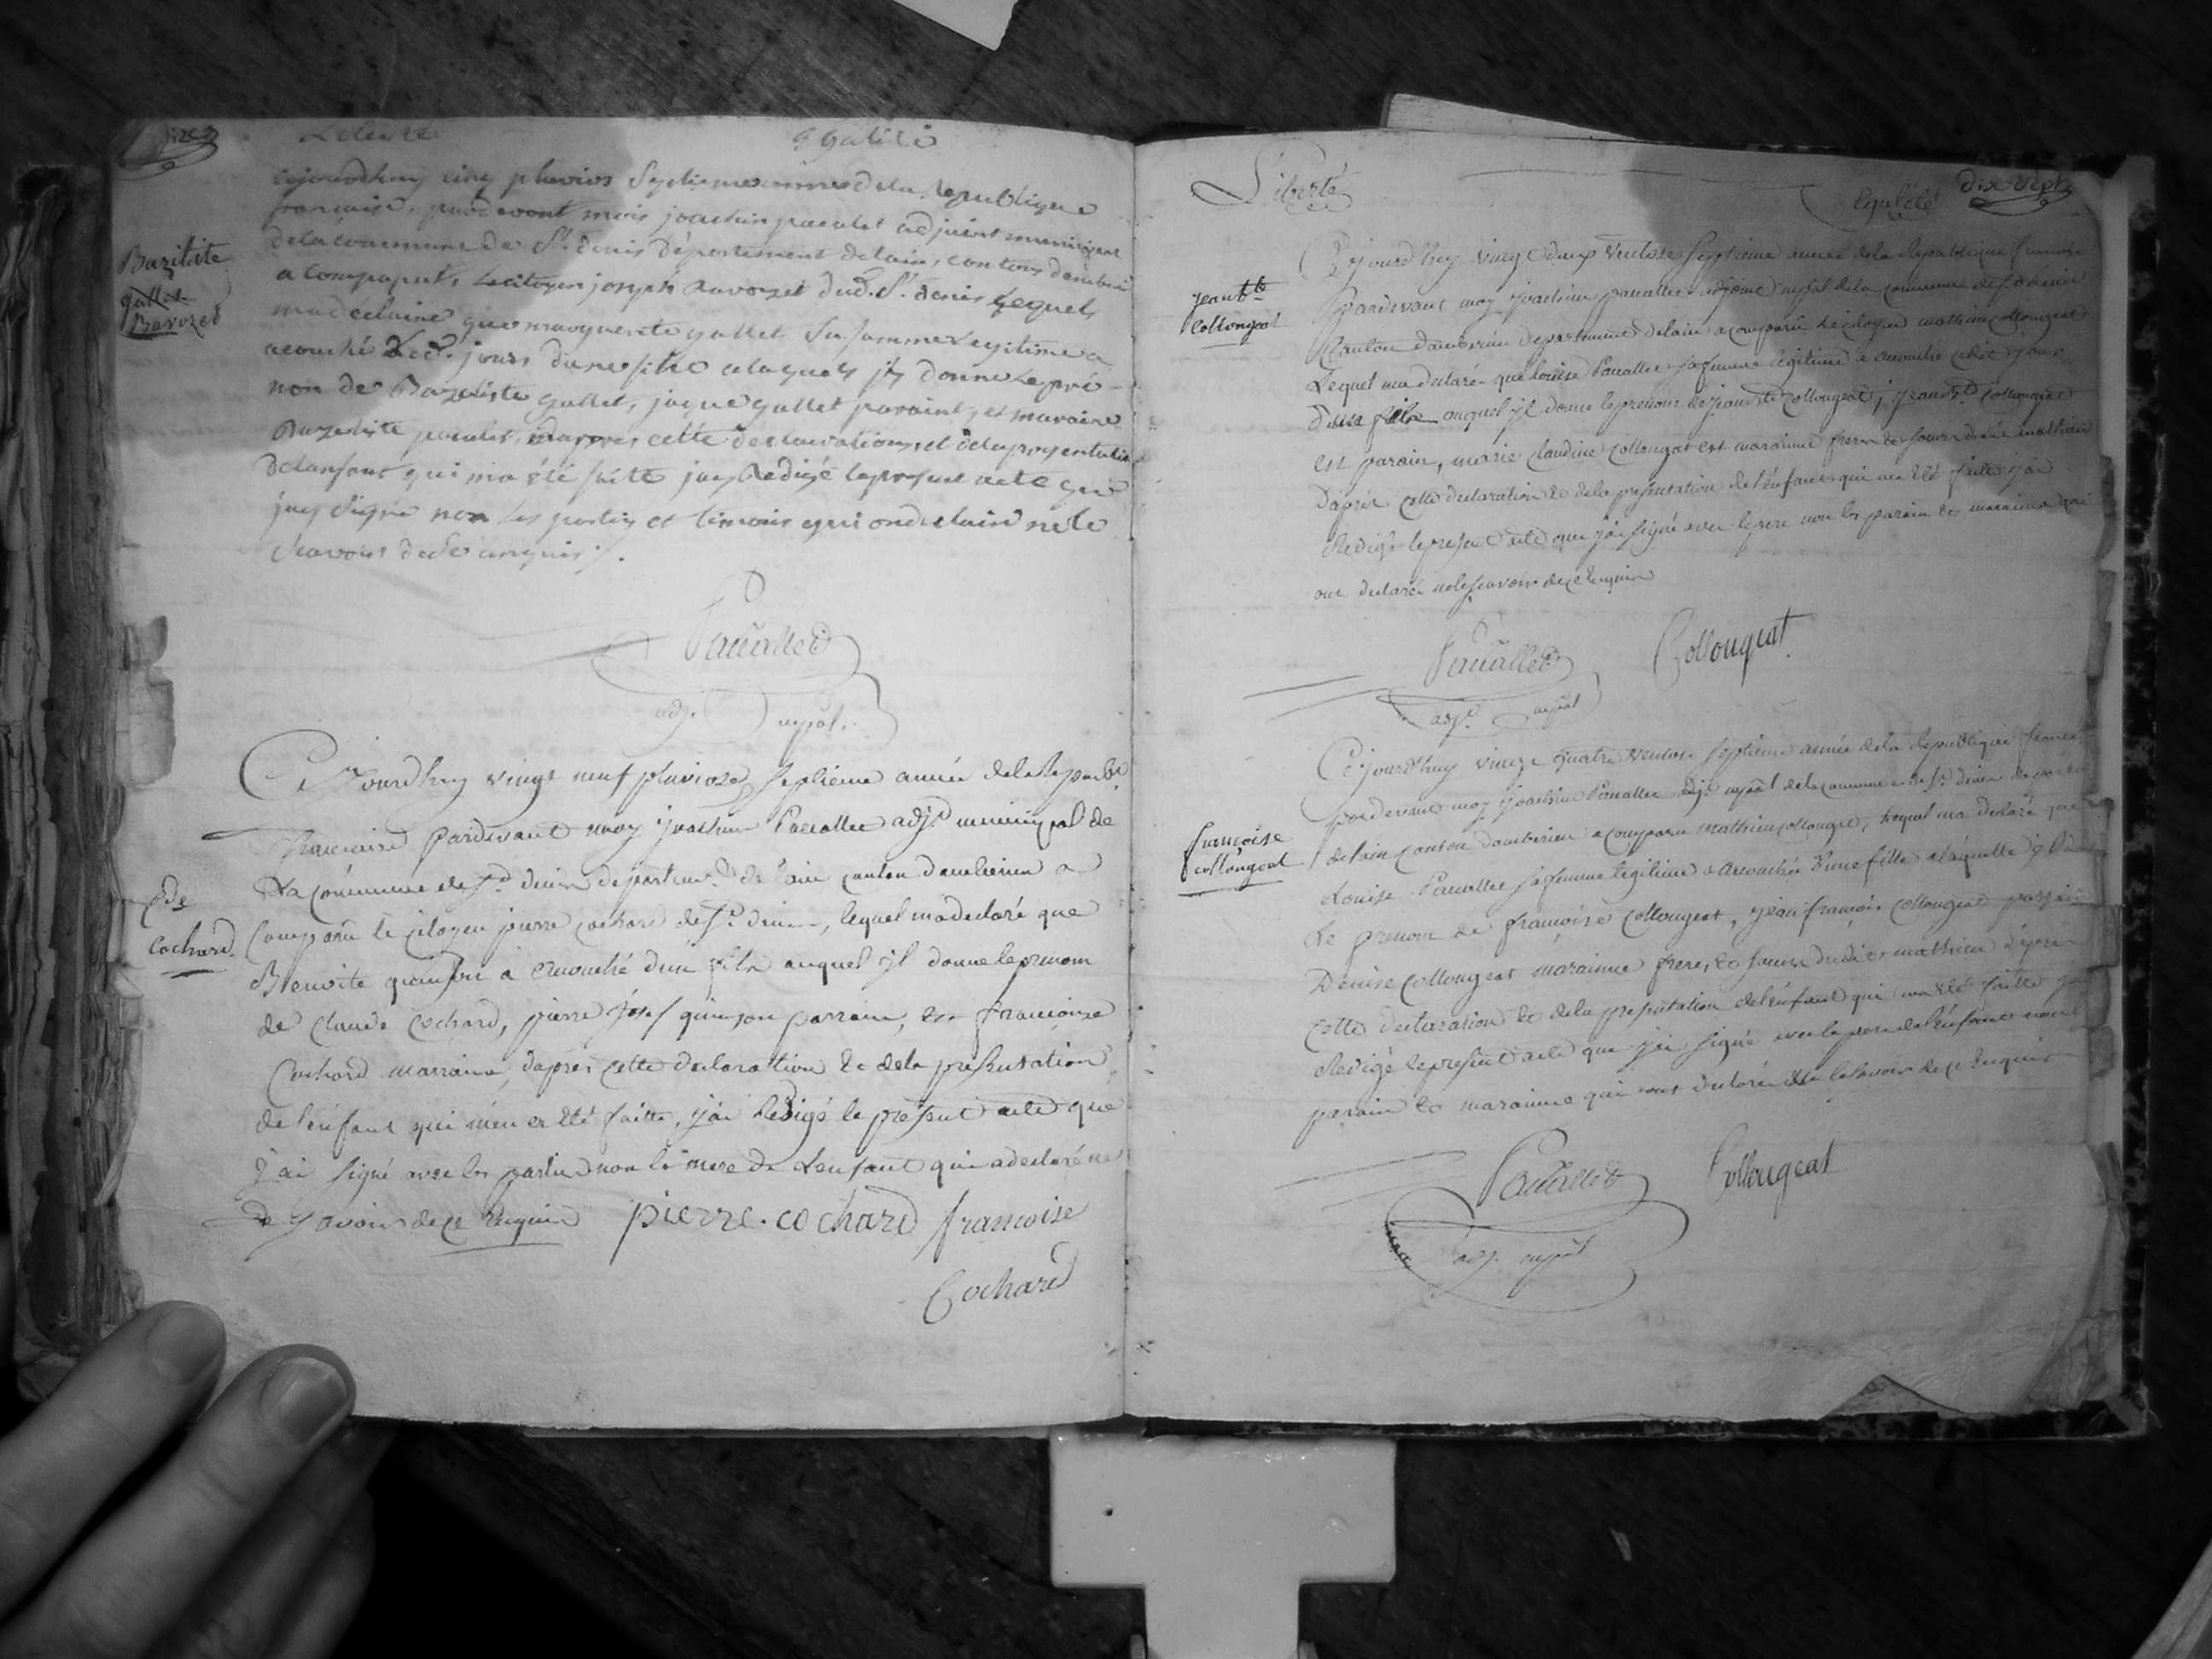 Liberté Egalité
cejourdhuy cinq pluvios septieme année dela republique
francaise, pardevant moi joachin pacalet adjoint municipal
de la commune de St. denis département delain, canton dambérie
a comparut, le citoyen joseph Bavozet dud. St. denis lequel
ma declaire que marguerite gallet sa famme legitime a
acouché led. jours dune fille alaquels jly donne le pré-
non de Bazeliste gallet, jaque gallet paraint, et maraine
Bazeliste pacalet, dapres cette declaration, et delapresentation
delanfant qui ma été faitte jay Redigé le present acte que
jay signé non les partis et timoins qui ond declairé ne le
savoir dece enquis ./.
Bazilite
gallet
Bavozet
Pacallet
adj. mpal.
Cejourd'huy vingt neuf pluviose, septième année dela Republ.
francaise pardevant moy joachim Pacallet adj.t municipal de
La commune de St denis departem.t de lain canton dambérieu a
Comparu le citoyen pierre cochard de St denis, lequel ma declaré que
Benoite a accouché d'un fils auquel jl donne le prenom
de Claude Cochard, pierre josef parrain, et francoise
Cochard marraine, dapres cette declaration et dela presentation
de l'enfant qui m'en a eté faitte, j'ai Redigé le present acte que
j'ai signé avec les parties non la mere de Lenfant qui a declaré ne
le savoir de ce Enquis pierre. cochard francoise
Cochard
Cde
Cochard.
Liberté Egalité dix sept
Cejourd'huy vingt deux Ventose septieme année dela Republique francaise
Pardevant moy joachim pacallet adjoint mpal dela commune de St denis
Canton dambérieu departement delain a comparu le citoyen mathieu collongeat
Lequel ma declaré que louise Pacallet sa femme legitime a accouché cedit jour
d'un fils auquel jl donne le prenom de jean bte Collongeat, jean bte collongeat
est parain, marie claudine Collongeat est maraine frere et soeur dudit mathieu
D'après cette declaration et dela presentation de l'enfant qui ma été faite j'ai
Redigé le present acte que j'ai signé avec le pere non les parain et maraine qui
ont declaré ne le scavoir de ce Enquis
jean bte
Collongeat
Pacallet Collongeat
adj.t mpal
Cejourd'huy vingt quatre Ventose septième année dela Republique francaise
pardevant moy joachim Pacallet adj.t mpal dela commune de St denis
delain canton dambérieu a comparu Mathieu collongeat, lequel ma declaré que
Louise Pacallet sa femme legitime a accouchée d'une fille a laquelle jl donne
Le prenom de francoise Collongeat, jean francois collongeat parrain
Denise Collongeat maraine frere, et soeur dudit mathieu d'après
Cette declaration et dela presentation de l'enfant qui ma été faitte j'ai
Redigé le present acte que j'ai signé avec le pere de l'enfant non le
parain et maraine qui ont declaré ne le savoir de ce Enquis
francoise
collongeat
Pacallet Collongeat
adj. mpal